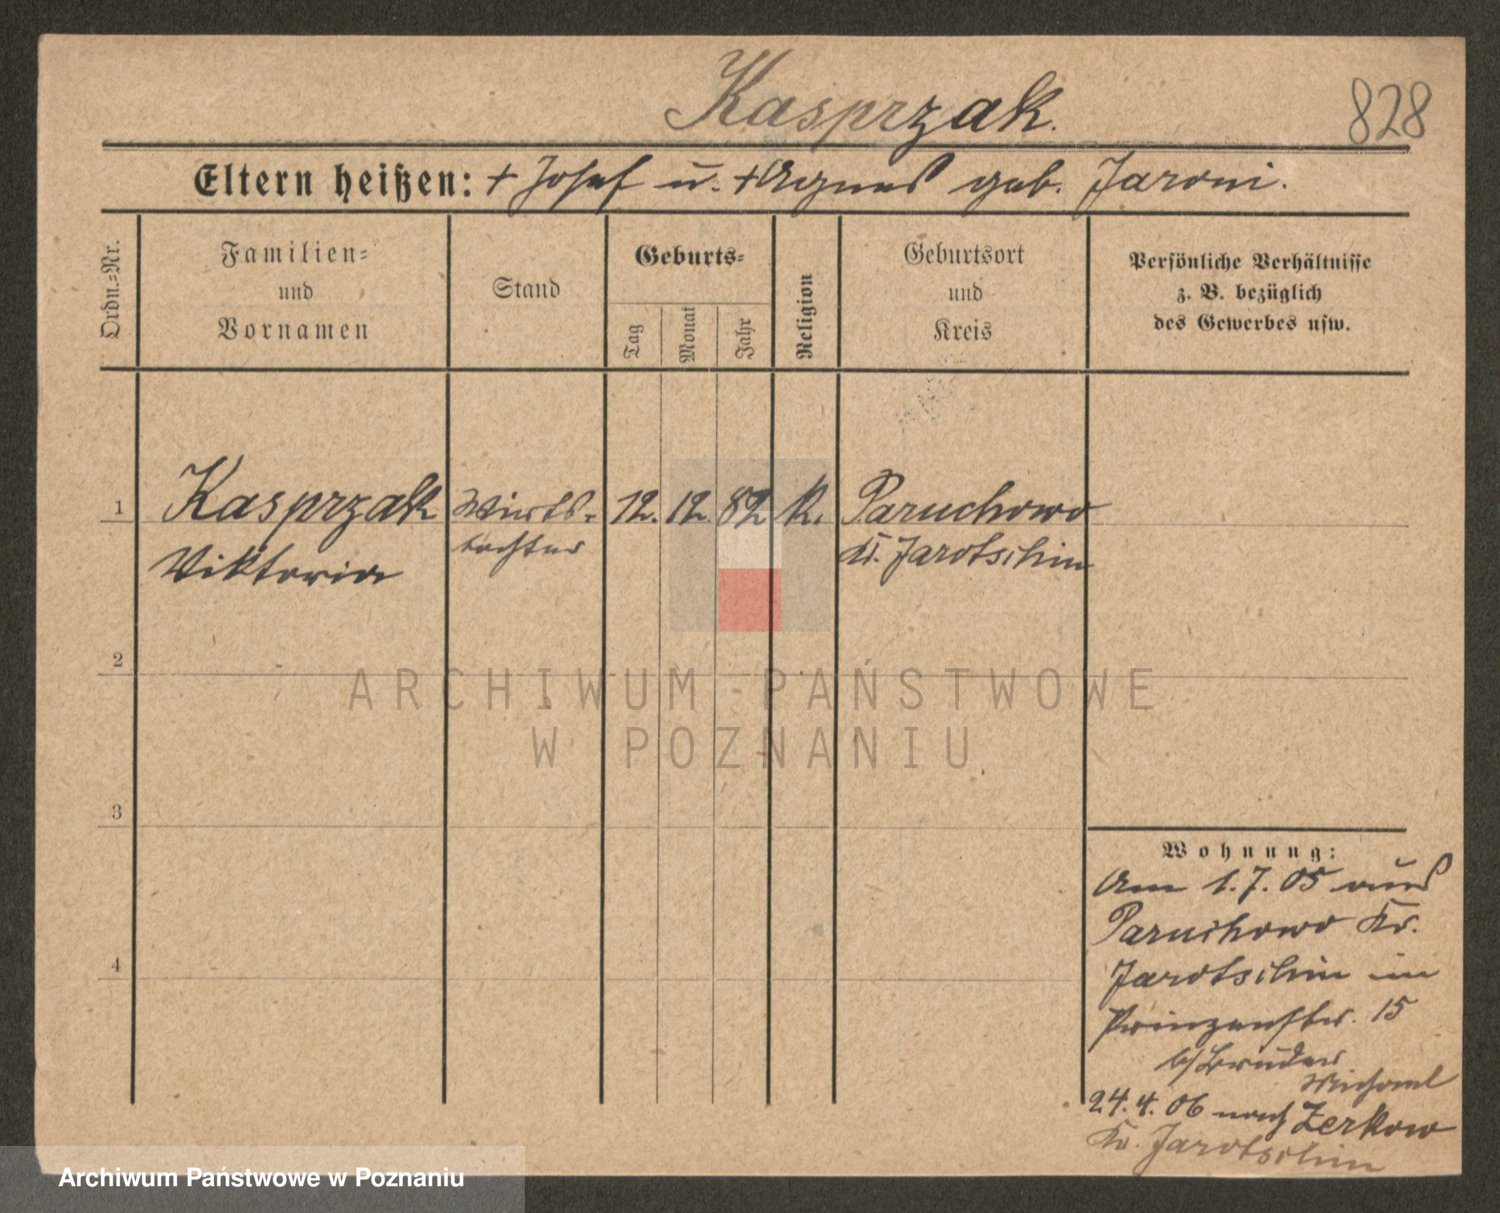 Kasprzak.
828
Eltern heißen: + Josef u. + Agnes geb. Jaroni.
Ordn.-Nr.
Familien-
und
Vornamen
Stand
Geburts-
Tag
Monat
Jahr
Religion
Geburtsort
und
Kreis
Persönliche Verhältnisse
z. B. bezüglich
des Gewerbes usw.
1
Kasprzak
Viktoria
Wirts-
tochter
12. 12. 82
k.
Paruchowo
Kr. Jarotschin
2
3
4
Wohnung:
Am 1.7.05 aus
Paruchowo Kr.
Jarotschin in
Prinzenstr. 15
b/ Bruder
Michael
24.4.06 nach Zerkow
Kr. Jarotschin
ARCHIWUM PAŃSTWOWE
W POZNANIU
Archiwum Państwowe w Poznaniu